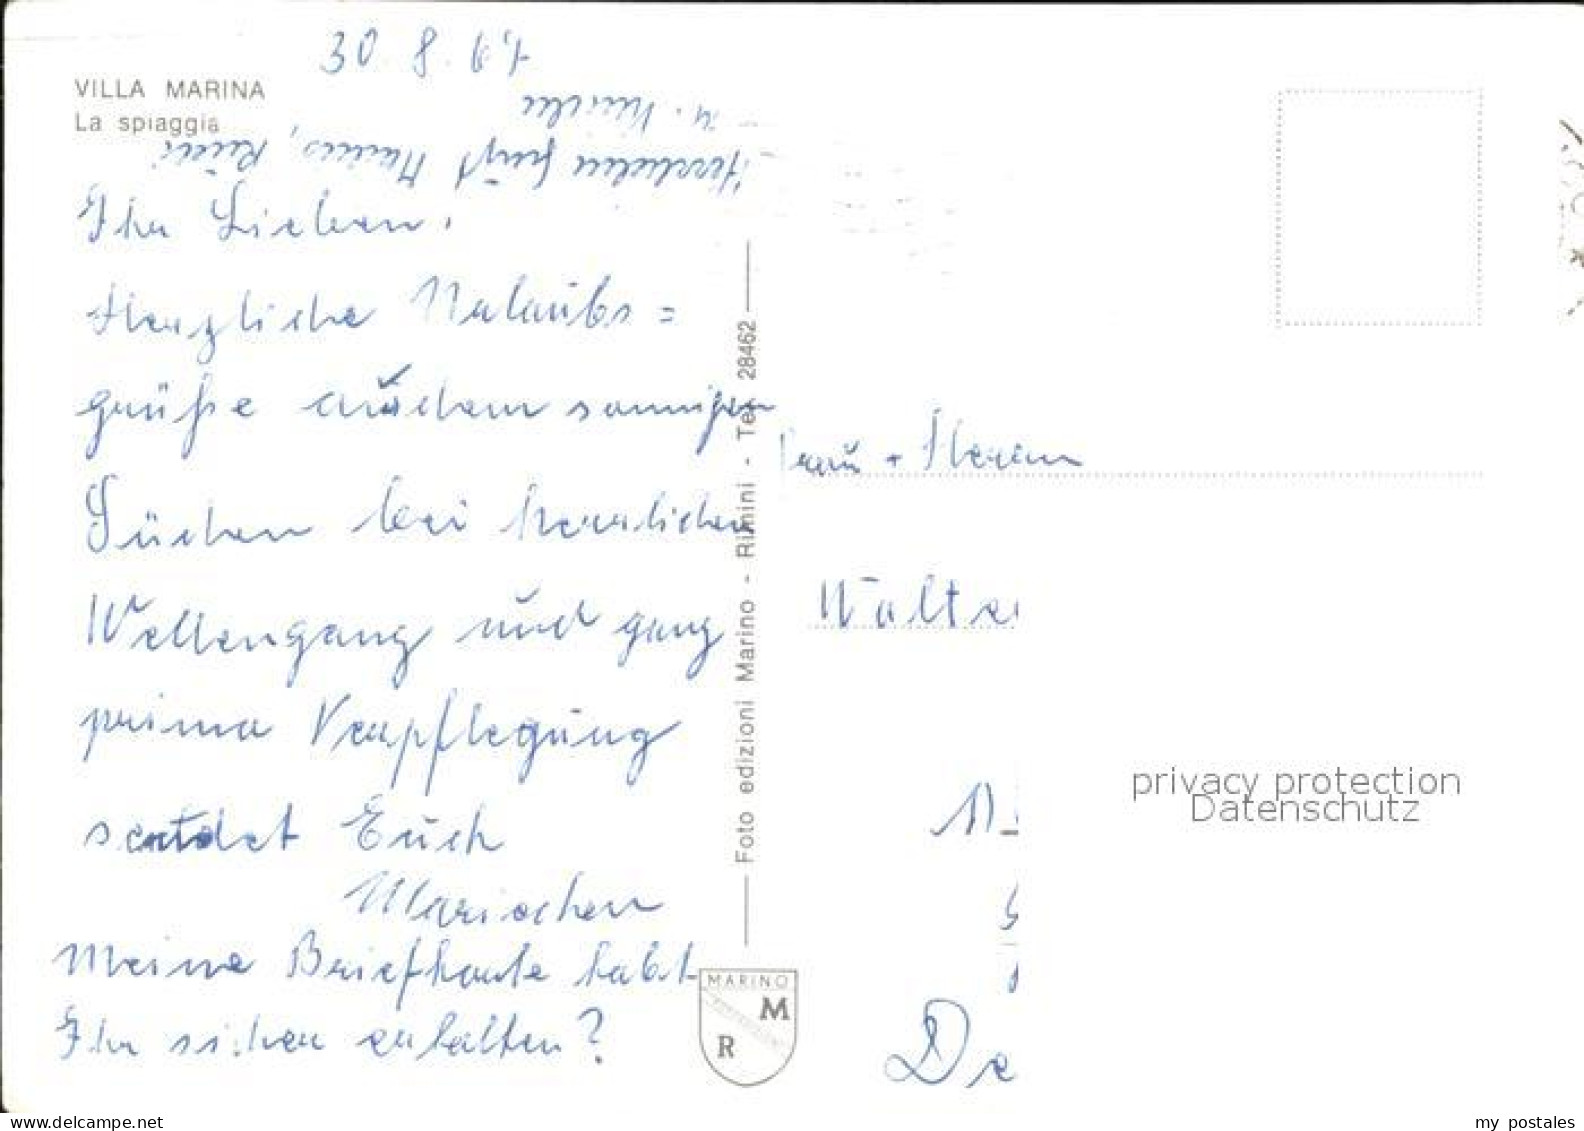 30.8.61
VILLA MARINA
La spiaggia
Ihr Lieben,
Herzliche Urlaubs=
grüße aus dem sonnigen
Süden bei herrlichen
Wellengang und ganz
prima Verpflegung
sendet Euch
Marischen
Meine Briefkarte habt
Ihr sicher erhalten?
Herzlichen
u.
Foto edizioni Marino - Rimini - Tel. 28462
MARINO
M
R
Frau + Herrn
Walte
De
privacy protection
Datenschutz
my postales